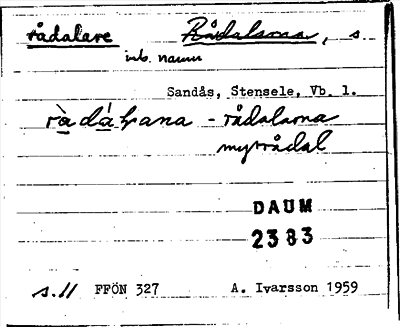 rådalare Rådalarna, s
inb. namn
Sandås, Stensele, Vb. l.
- rådalarna
myrrådal
DAUM
2383
s.11 FFÖN 327 A. Ivarsson 1959